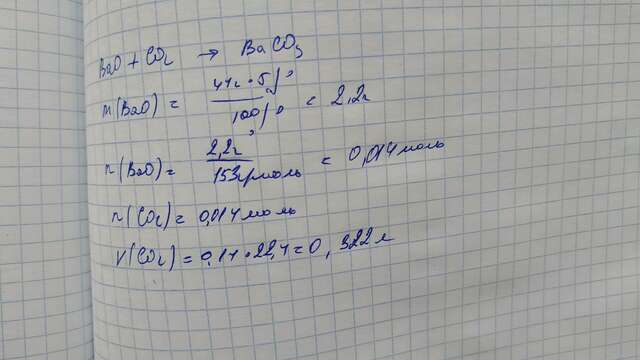 BaO + CO₂ → BaCO₃
m(BaO) = 44г · 5% / 100% = 2,2г
n(BaO) = 2,2г / 153г/моль = 0,014 моль
n(CO₂) = 0,014 моль
V(CO₂) = 0,14 · 22,4 = 0,322 л